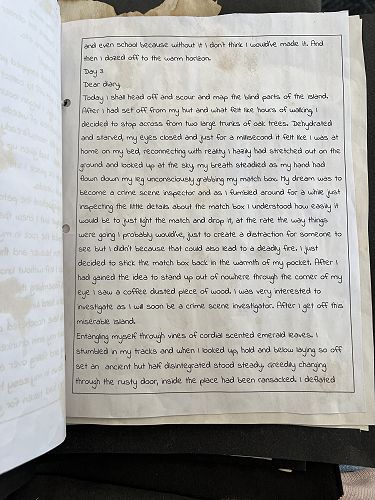 and even school because without it I don't think I would've made it. And
then I dozed off to the warm horizon.
Day 3
Dear diary,
Today I shall head off and scour and map the blind parts of the island.
After I had set off from my hut and what felt like hours of walking I
decided to stop across from two large trunks of oak trees. Dehydrated
and starved, my eyes closed and just for a millisecond it felt like I was at
home on my bed, reconnecting with reality I hazily had stretched out on the
ground and looked up at the sky, my breath steadied as my hand had
flown down my leg unconsciously grabbing my match box. My dream was to
become a crime scene inspector and as I fumbled around for a while just
inspecting the little details about the match box I understood how easily it
would be to just light the match and drop it, at the rate the way things
were going I probably would've, just to create a distraction for someone to
see but I didn't because that could also lead to a deadly fire. I just
decided to stick the match box back in the warmth of my pocket. After I
had gained the idea to stand up out of nowhere through the corner of my
eye I saw a coffee dusted piece of wood. I was very interested to
investigate as I will soon be a crime scene investigator. After I get off this
miserable island.
Entangling myself through vines of cordial scented emerald leaves. I
stumbled in my tracks and when I looked up, hold and below laying so off
set an ancient hut half disintegrated stood steady. Greedily charging
through the rusty door, inside the place had been ransacked. I deflated